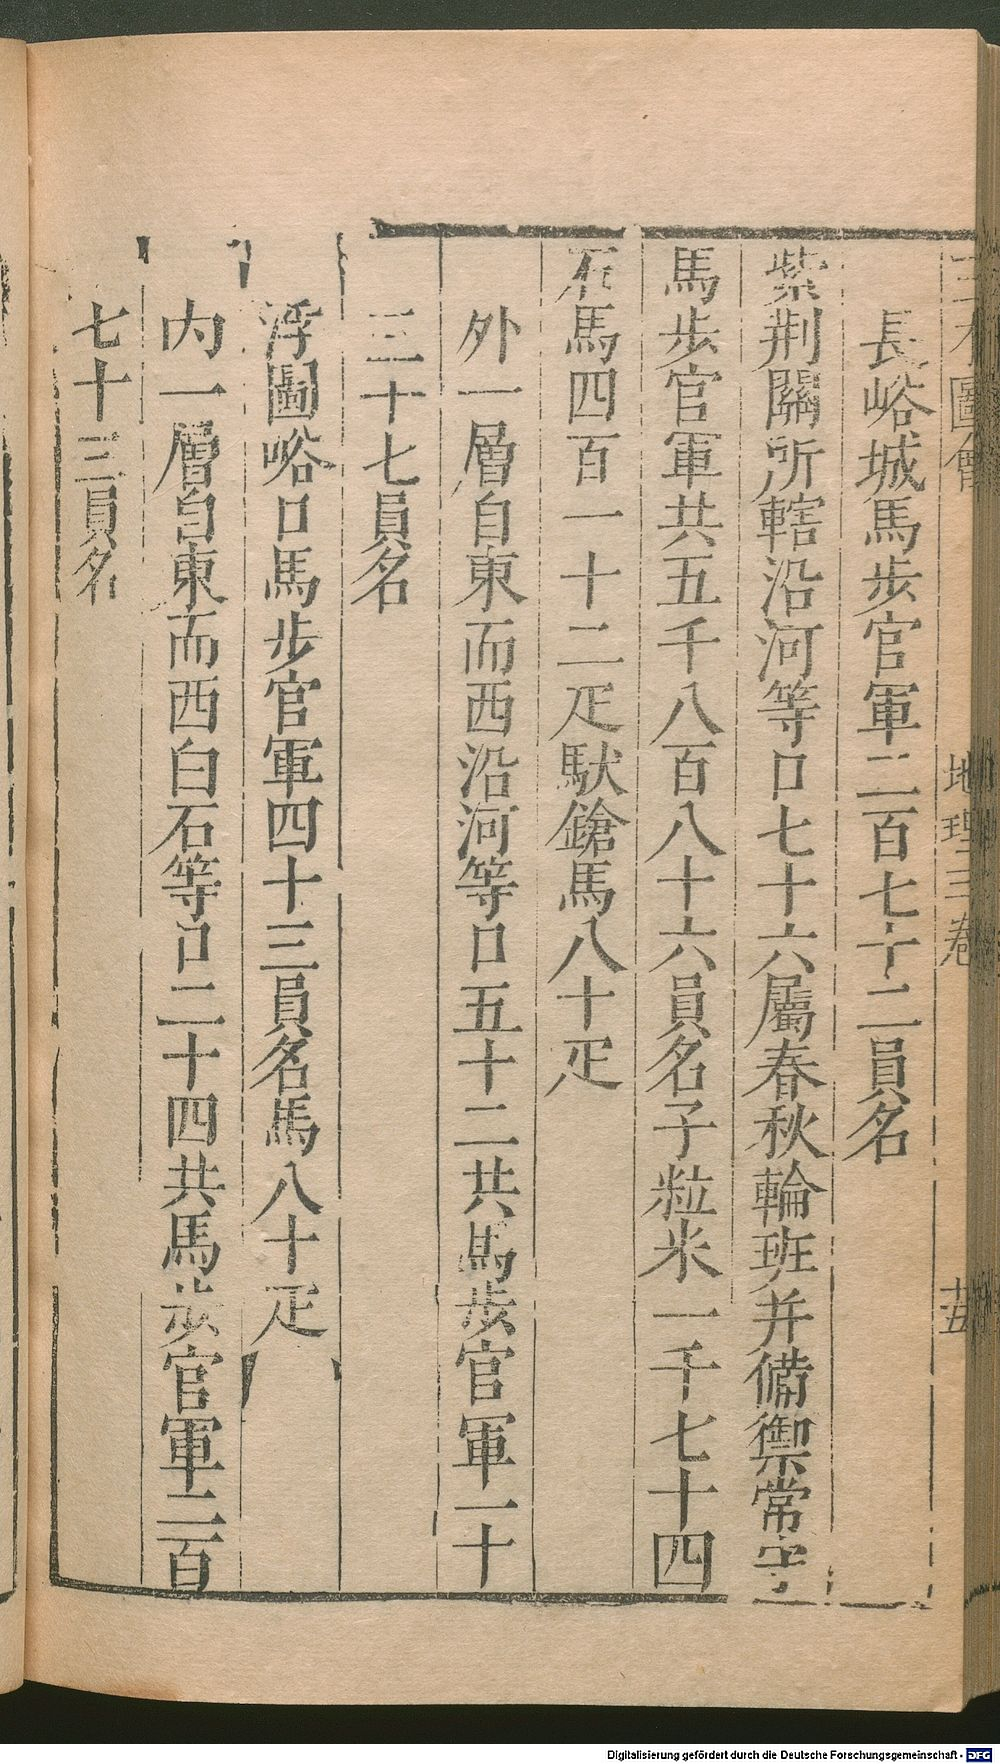 三才圖會 地理三卷 廿五
長峪城馬步官軍二百七十二員名
紫荆關所轄沿河等口七十六屬春秋輪班并備禦常守
馬步官軍共五千八百八十六員名子粒米一千七十四
石馬四百一十二疋馱鎗馬八十疋
外一層自東而西沿河等口五十二共馬步官軍一十
三十七員名
浮圖峪口馬步官軍四十三員名馬八十疋
内一層自東而西白石等口二十四共馬步官軍二百
七十三員名
Digitalisierung gefördert durch die Deutsche Forschungsgemeinschaft - DFG